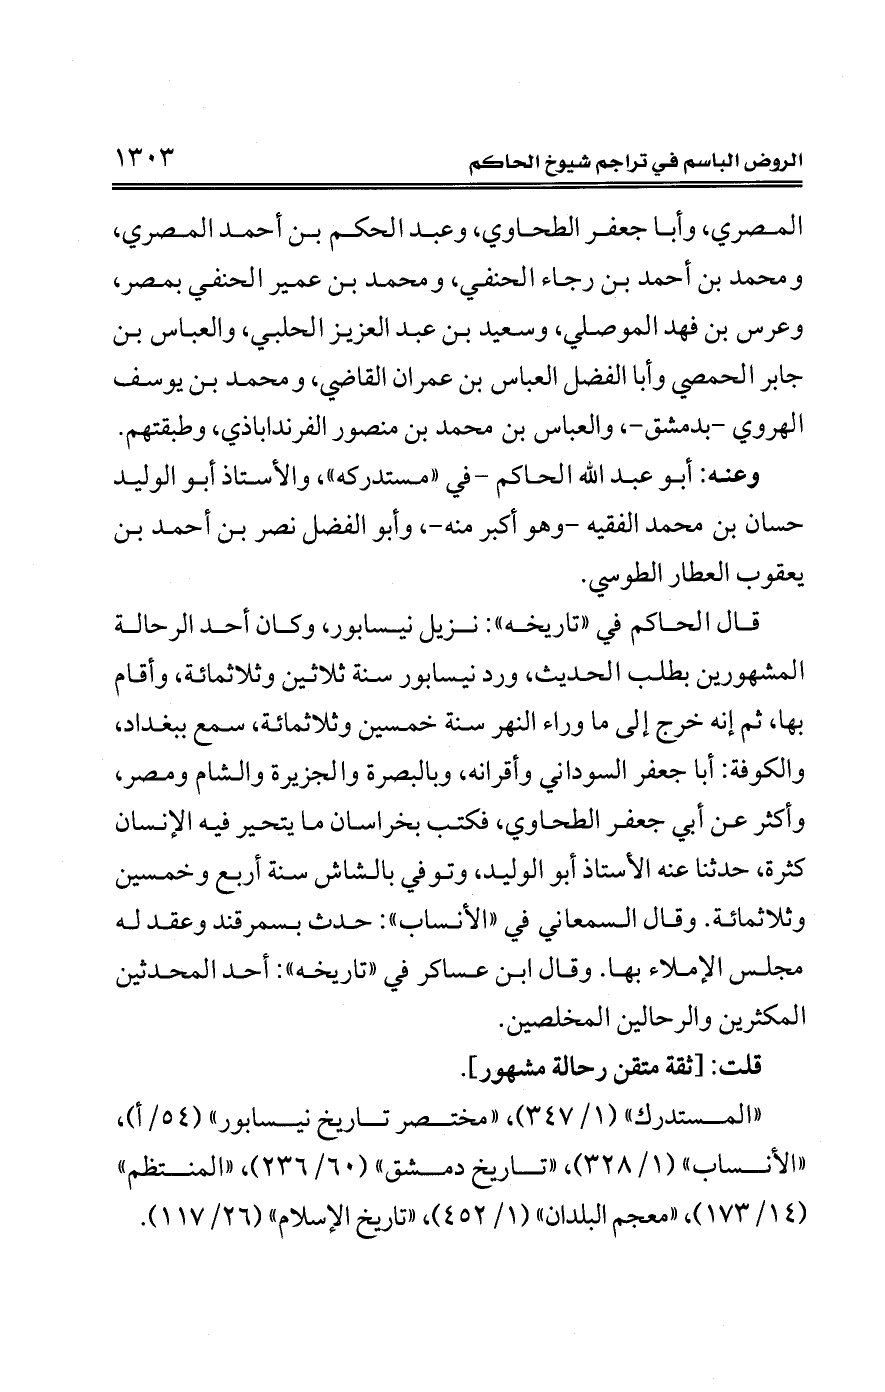 الروض الباسم في تراجم شيوخ الحاكم ١٣٠٣
المصري، وأبا جعفر الطحاوي، وعبد الحكم بن أحمد المصري،
ومحمد بن أحمد بن رجاء الحنفي، ومحمد بن عمير الحنفي بمصر،
وعرس بن فهد الموصلي، وسعيد بن عبد العزيز الحلبي، والعباس بن
جابر الحمصي وأبا الفضل العباس بن عمران القاضي، ومحمد بن يوسف
الهروي -بدمشق-، والعباس بن محمد بن منصور الفرنداباذي، وطبقتهم.
وعنه: أبو عبد الله الحاكم -في «مستدركه»، والأستاذ أبو الوليد
حسان بن محمد الفقيه -وهو أكبر منه-، وأبو الفضل نصر بن أحمد بن
يعقوب العطار الطوسي.
قال الحاكم في «تاريخه»: نزيل نيسابور، وكان أحد الرحالة
المشهورين بطلب الحديث، ورد نيسابور سنة ثلاثين وثلاثمائة، وأقام
بها، ثم إنه خرج إلى ما وراء النهر سنة خمسين وثلاثمائة، سمع ببغداد،
والكوفة: أبا جعفر السوداني وأقرانه، وبالبصرة والجزيرة والشام ومصر،
وأكثر عن أبي جعفر الطحاوي، فكتب بخراسان ما يتحير فيه الإنسان
كثرة، حدثنا عنه الأستاذ أبو الوليد، وتوفي بالشاش سنة أربع وخمسين
وثلاثمائة. وقال السمعاني في «الأنساب»: حدث بسمرقند وعقد له
مجلس الإملاء بها. وقال ابن عساكر في «تاريخه»: أحد المحدثين
المكثرين والرحالين المخلصين.
قلت: [ثقة متقن رحالة مشهور].
«المستدرك» (١/ ٣٤٧)، «مختصر تاريخ نيسابور» (٥٤/ أ)،
«الأنساب» (١/ ٣٢٨)، «تاريخ دمشق» (٦٠/ ٢٣٦)، «المنتظم»
(١٤/ ١٧٣)، «معجم البلدان» (١/ ٤٥٢)، «تاريخ الإسلام» (٢٦/ ١١٧).